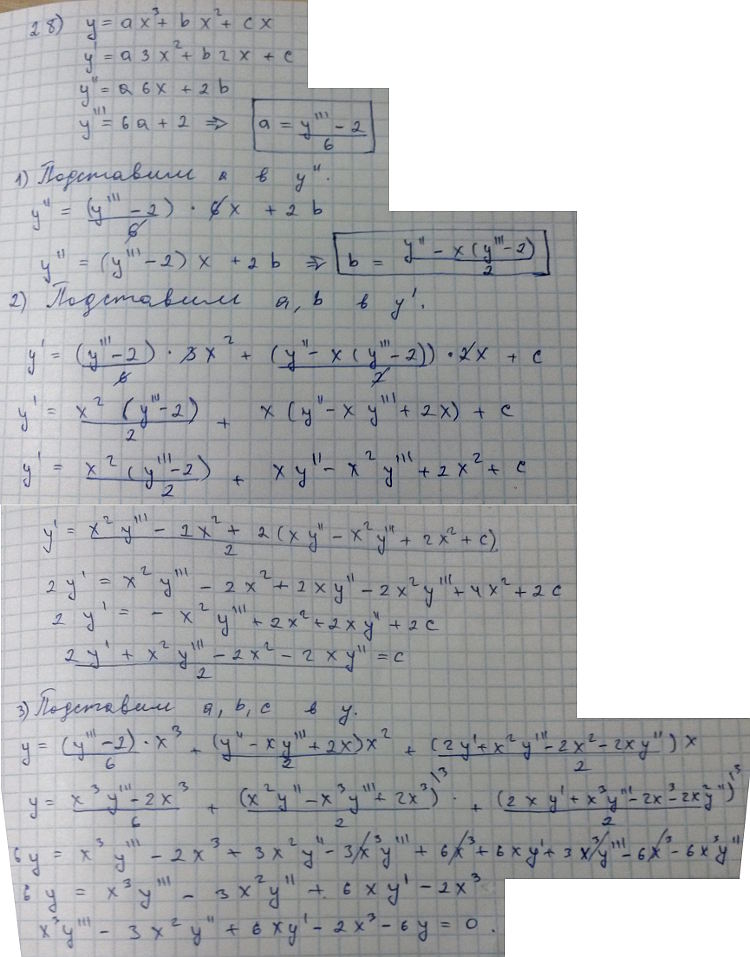 28) y = ax³ + bx² + cx
y' = a3x² + b2x + c
y'' = a6x + 2b
y''' = 6a + 2 ⇒ a = (y''' - 2)/6
1) Подставим a в y''.
y'' = (y''' - 2)/6 · 6x + 2b
y'' = (y''' - 2)x + 2b ⇒ b = (y'' - x(y''' - 2))/2
2) Подставим a, b в y'.
y' = (y''' - 2)/6 · 3x² + (y'' - x(y''' - 2))/2 · 2x + c
y' = x²(y''' - 2)/2 + x(y'' - xy''' + 2x) + c
y' = x²(y''' - 2)/2 + xy'' - x²y''' + 2x² + c
y' = (x²y''' - 2x² + 2(xy'' - x²y''' + 2x² + c))/2
2y' = x²y''' - 2x² + 2xy'' - 2x²y''' + 4x² + 2c
2y' = - x²y''' + 2x² + 2xy'' + 2c
(2y' + x²y''' - 2x² - 2xy'')/2 = c
3) Подставим a, b, c в y.
y = (y''' - 2)/6 · x³ + (y'' - xy''' + 2x)x²/2 + (2y' + x²y''' - 2x² - 2xy'')/2 x
y = (x³y''' - 2x³)/6 + (x²y'' - x³y''' + 2x³)\3/2 + (2xy' + x³y''' - 2x³ - 2x²y'')\3/2
6y = x³y''' - 2x³ + 3x²y'' - 3x³y''' + 6x³ + 6xy' + 3x³y''' - 6x³ - 6x³y''
6y = x³y''' - 3x²y'' + 6xy' - 2x³
x³y''' - 3x²y'' + 6xy' - 2x³ - 6y = 0.